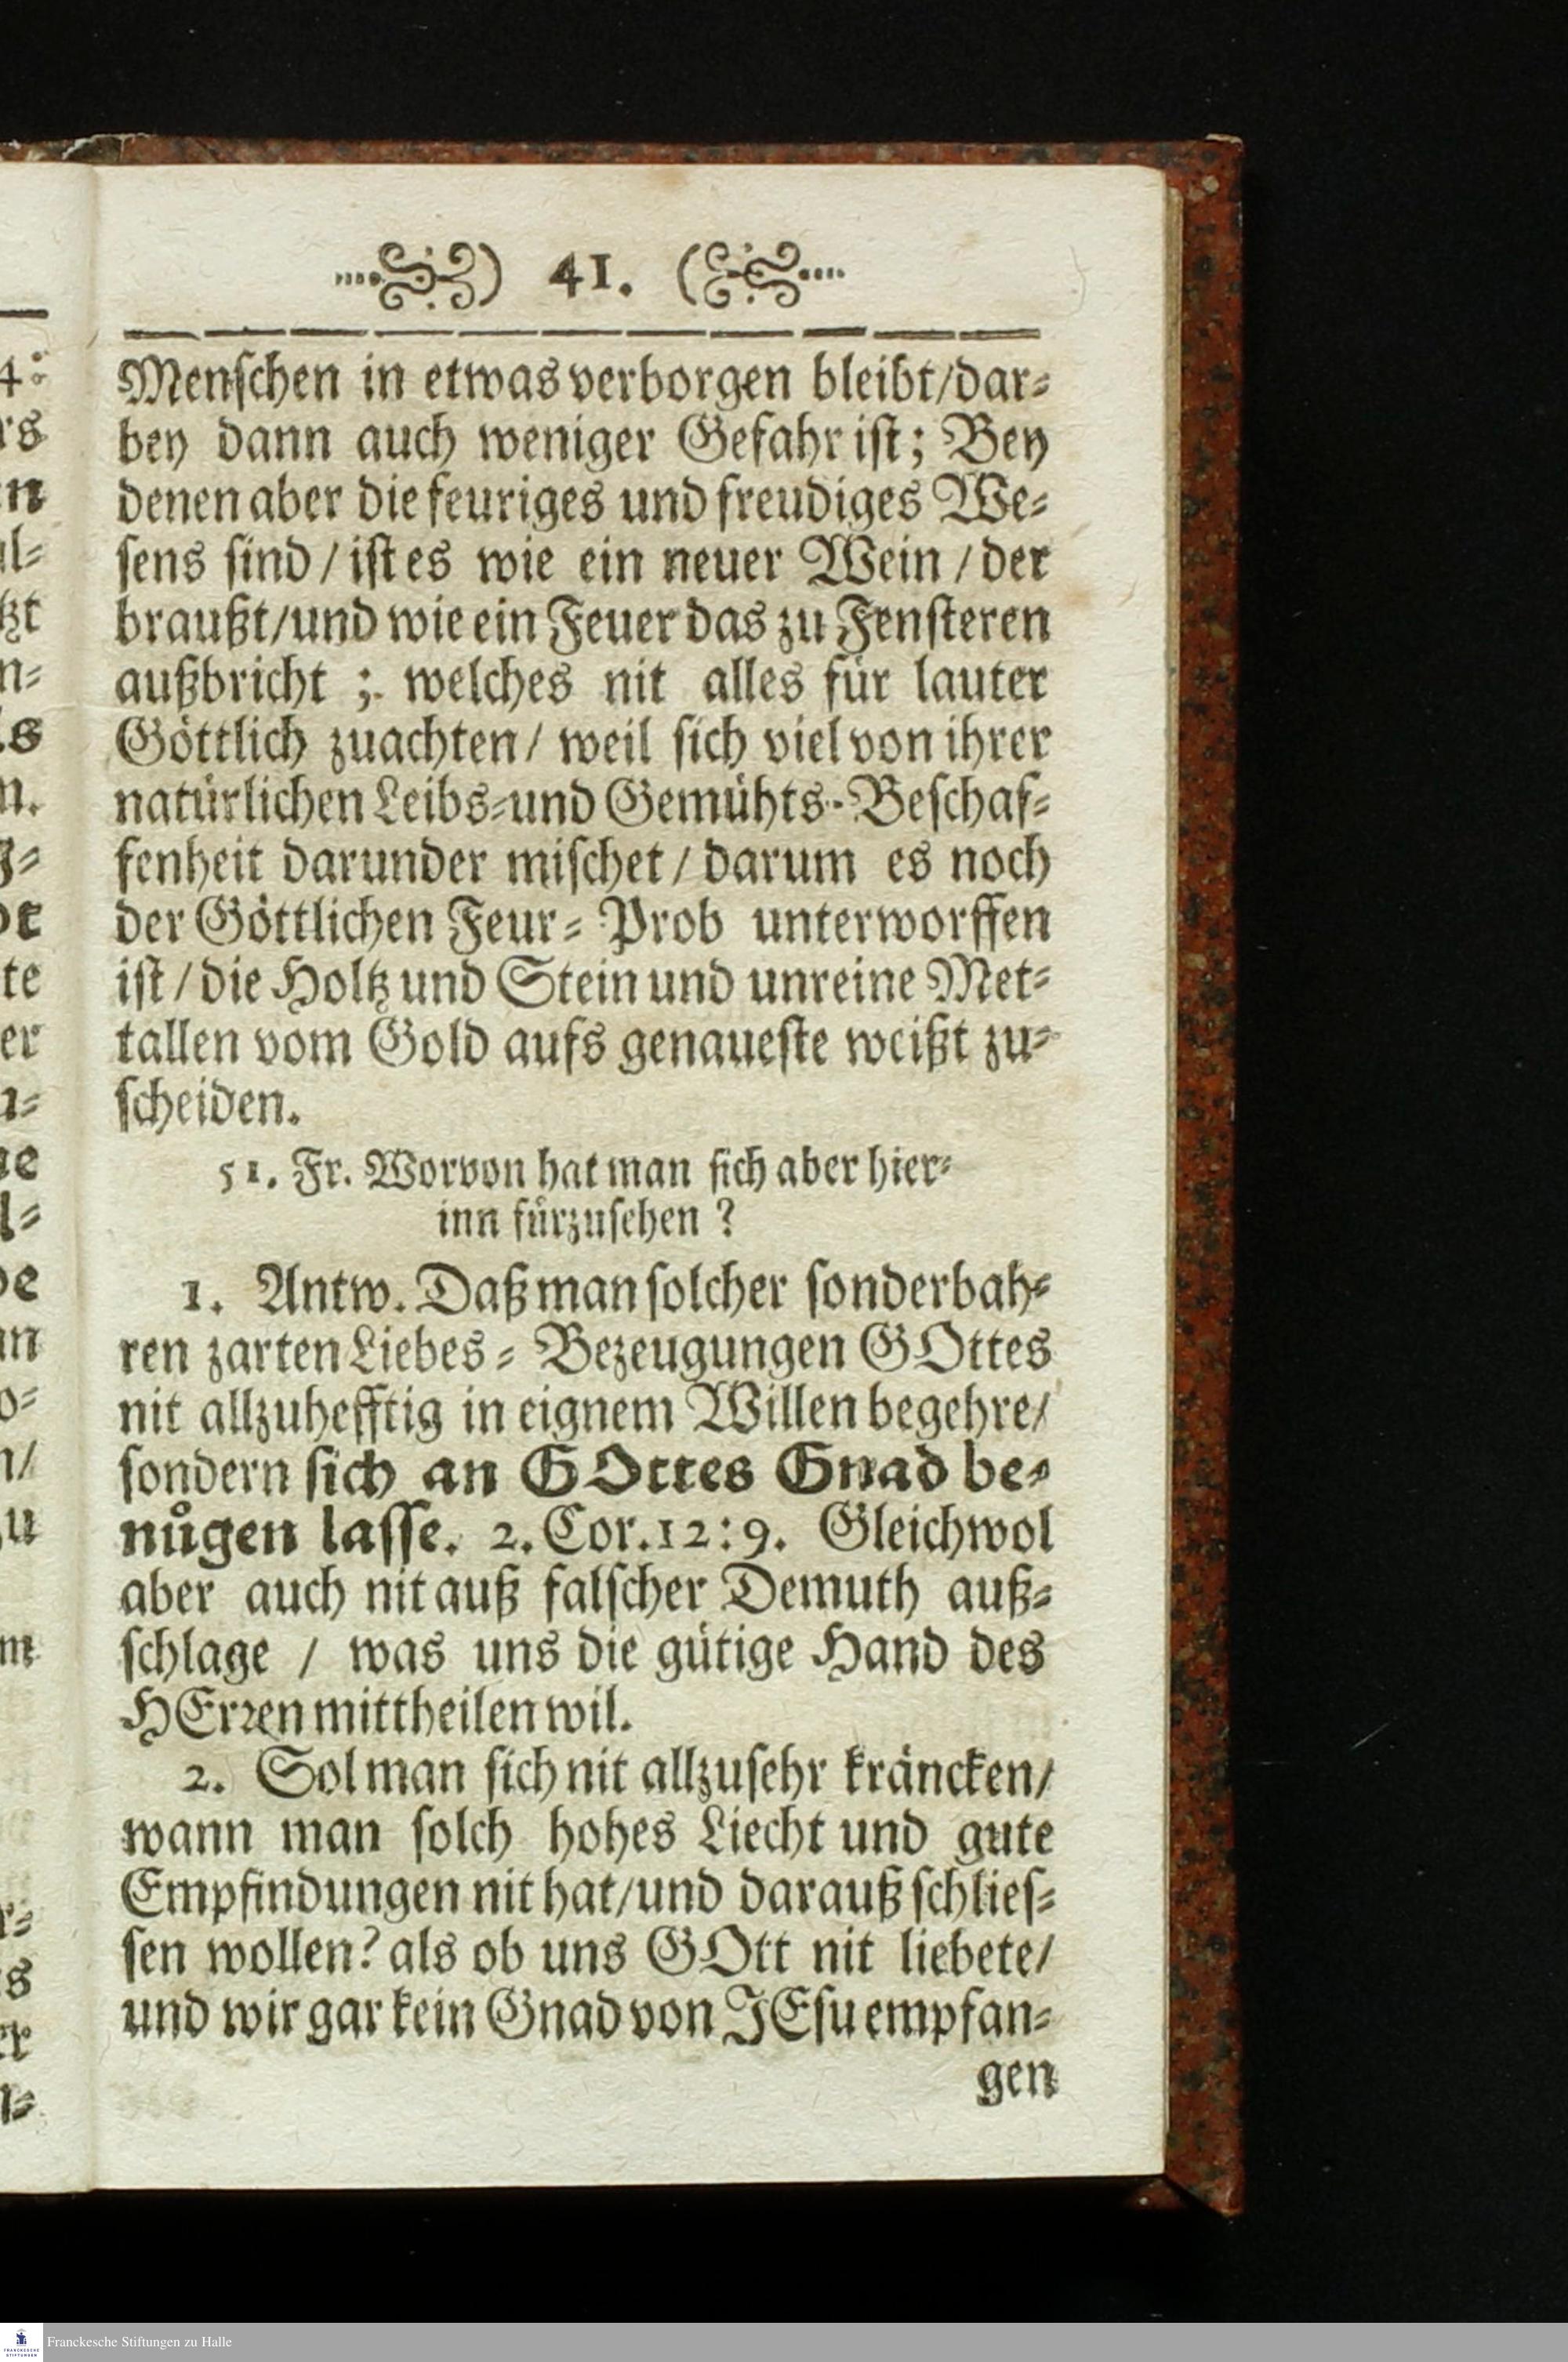 41.
Menschen in etwas verborgen bleibt/dar⸗
bey dann auch weniger Gefahr ist; Bey
denen aber die feuriges und freudiges We⸗
sens sind / ist es wie ein neuer Wein / der
braußt/und wie ein Feuer das zu Fensteren
außbricht ; welches nit alles für lauter
Göttlich zuachten/ weil sich viel von ihrer
natürlichen Leibs⸗und Gemühts-Beschaf⸗
fenheit darunder mischet / darum es noch
der Göttlichen Feur⸗ Prob unterworffen
ist / die Holtz und Stein und unreine Met⸗
tallen vom Gold aufs genaueste weißt zu⸗
scheiden.
51. Fr. Worvon hat man sich aber hier⸗
inn fürzusehen ?
1. Antw. Daß man solcher sonderbah⸗
ren zarten Liebes⸗ Bezeugungen GOttes
nit allzuhefftig in eignem Willen begehre/
sondern sich an GOttes Gnad be⸗
nügen lasse. 2. Cor. 12:9. Gleichwol
aber auch nit auß falscher Demuth auß⸗
schlage / was uns die gütige Hand des
HErren mittheilen wil.
2. Sol man sich nit allzusehr kräncken/
wann man solch hohes Liecht und gute
Empfindungen nit hat/und darauß schlies⸗
sen wollen? als ob uns GOtt nit liebete/
und wir gar kein Gnad von JEsu empfan⸗
gen
Franckesche Stiftungen zu Halle